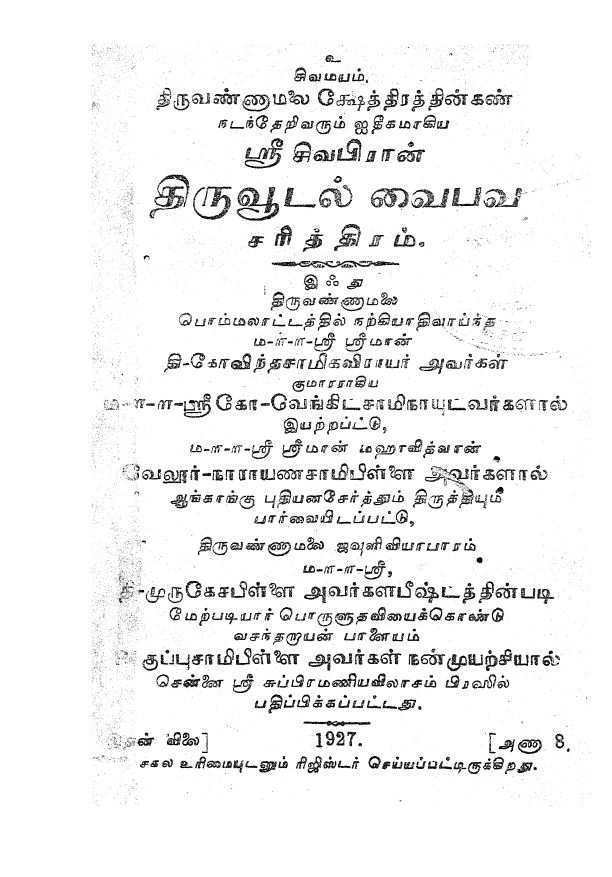 உ
சிவமயம்.
திருவண்ணாமலை க்ஷேத்திரத்தின்கண்
நடந்தேறிவரும் ஐதீகமாகிய
ஸ்ரீ சிவபிரான்
திருவூடல் வைபவ
சரித்திரம்.
இஃது
திருவண்ணாமலை
பொம்மலாட்டத்தில் நற்கியாதிவாய்ந்த
ம-ள-ள-ஸ்ரீ ஸ்ரீமான்
தி-கோவிந்தசாமிகவிராயர் அவர்கள்
குமாரராகிய
ம-ள-ள-ஸ்ரீ கோ-வேங்கிடசாமிநாயுடவர்களால்
இயற்றப்பட்டு,
ம-ள-ள-ஸ்ரீ ஸ்ரீமான் மஹாவித்வான்
வேலூர்-நாராயணசாமிபிள்ளை அவர்களால்
ஆங்காங்கு புதியனசேர்த்தும் திருத்தியும்
பார்வையிடப்பட்டு,
திருவண்ணாமலை ஜவுளிவியாபாரம்
ம-ள-ள-ஸ்ரீ,
தி-முருகேசபிள்ளை அவர்களபீஷ்டத்தின்படி
மேற்படியார் பொருளுதவியைக்கொண்டு
வசந்தராயன் பாளையம்
குப்புசாமிபிள்ளை அவர்கள் நன்முயற்சியால்
சென்னை ஸ்ரீ சுப்பிரமணியவிலாசம் பிரஸில்
பதிப்பிக்கப்பட்டது.
இதன் விலை] 1927. [அணா 8.
சகல உரிமையுடனும் ரிஜிஸ்டர் செய்யப்பட்டிருக்கிறது.